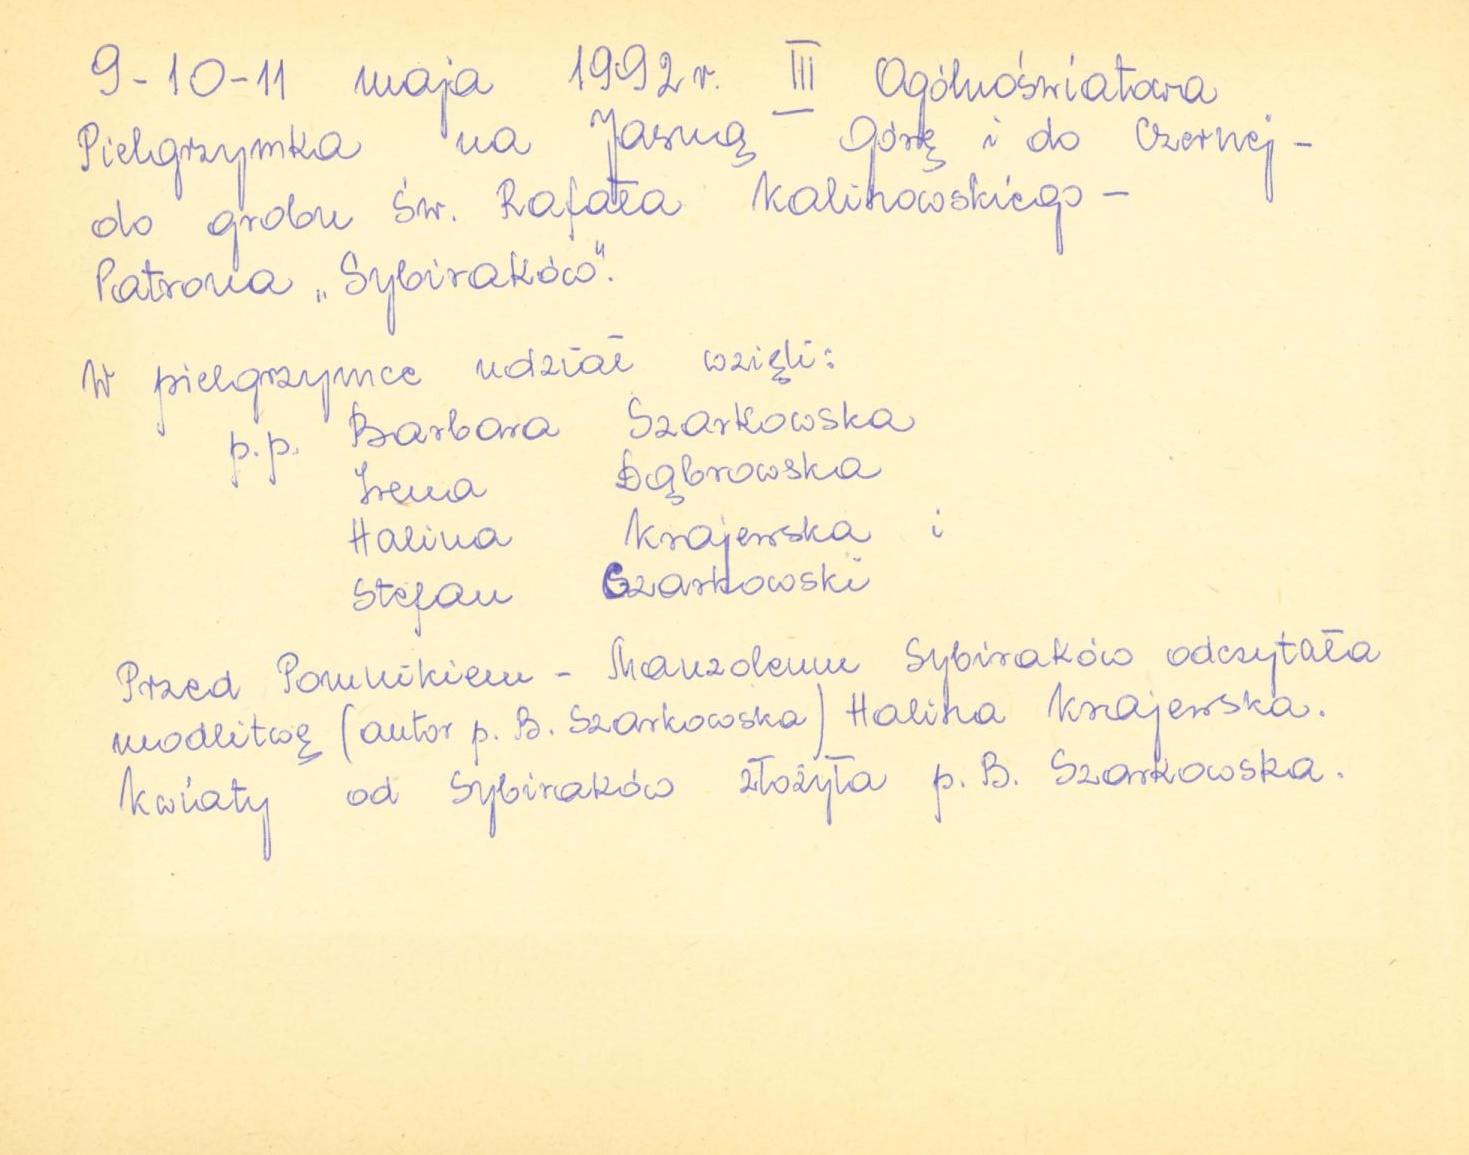 9-10-11 maja 1992 r. III Ogólnoświatowa
Pielgrzymka na Jasną Górę i do Czernej -
do grobu Św. Rafała Kalinowskiego -
Patrona „Sybiraków".
W pielgrzymce udział wzięli:
p.p. Barbara Szarkowska
Irena Dąbrowska
Halina Krajewska i
Stefan Szarkowski
Przed Pomnikiem - Mauzoleum Sybiraków odczytała
modlitwę (autor p. B. Szarkowska) Halina Krajewska.
Kwiaty od Sybiraków złożyła p. B. Szarkowska.